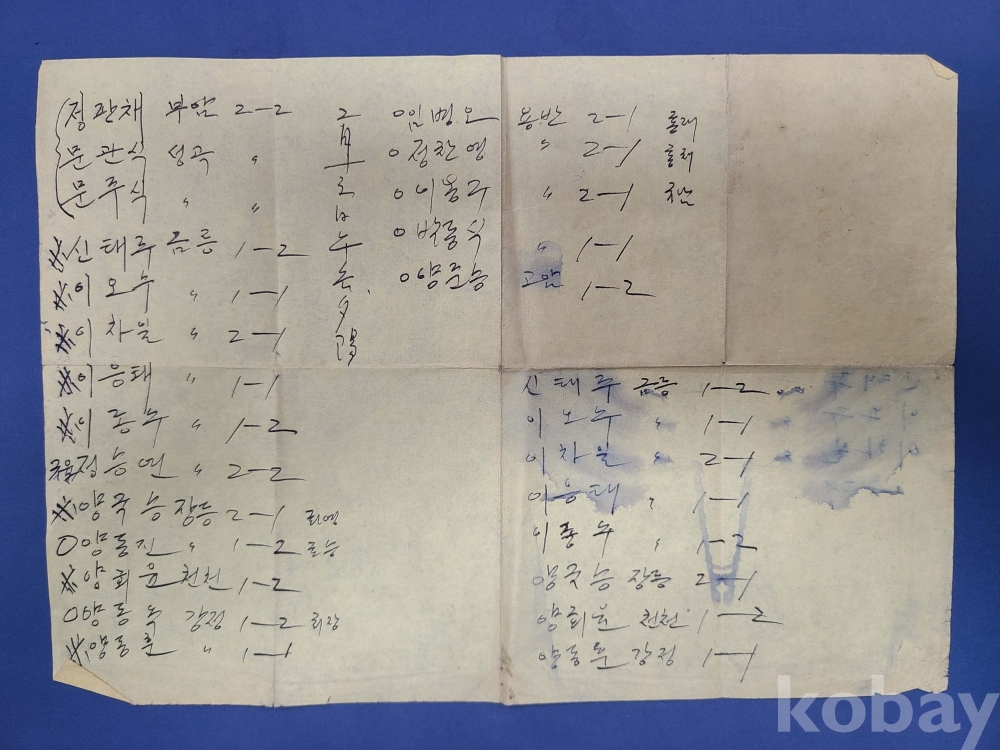 정판채 부암 2-2
문관식 성곡 〃
문주식 〃 〃
신태주 금릉 1-2
이오수 〃 1-1
이차일 〃 2-1
이응태 〃 1-1
이종수 〃 1-2
정능연 〃 2-2
양국승 장등 2-1
양동진 〃 1-2
양회윤 천천 1-2
양동욱 강정 1-2 회장
양동훈 〃 1-1
2月
夕陽
임병오 용반 2-1
정찬영 〃 2-1
이용구 〃 2-1
박종식 〃 1-1
양준승 고암 1-2
신태주 금릉 1-2
이오수 〃 1-1
이차일 〃 2-1
이응태 〃 1-1
이종수 〃 1-2
양국승 장등 2-1
양회윤 천천 1-2
양동훈 강정 1-1
kobay